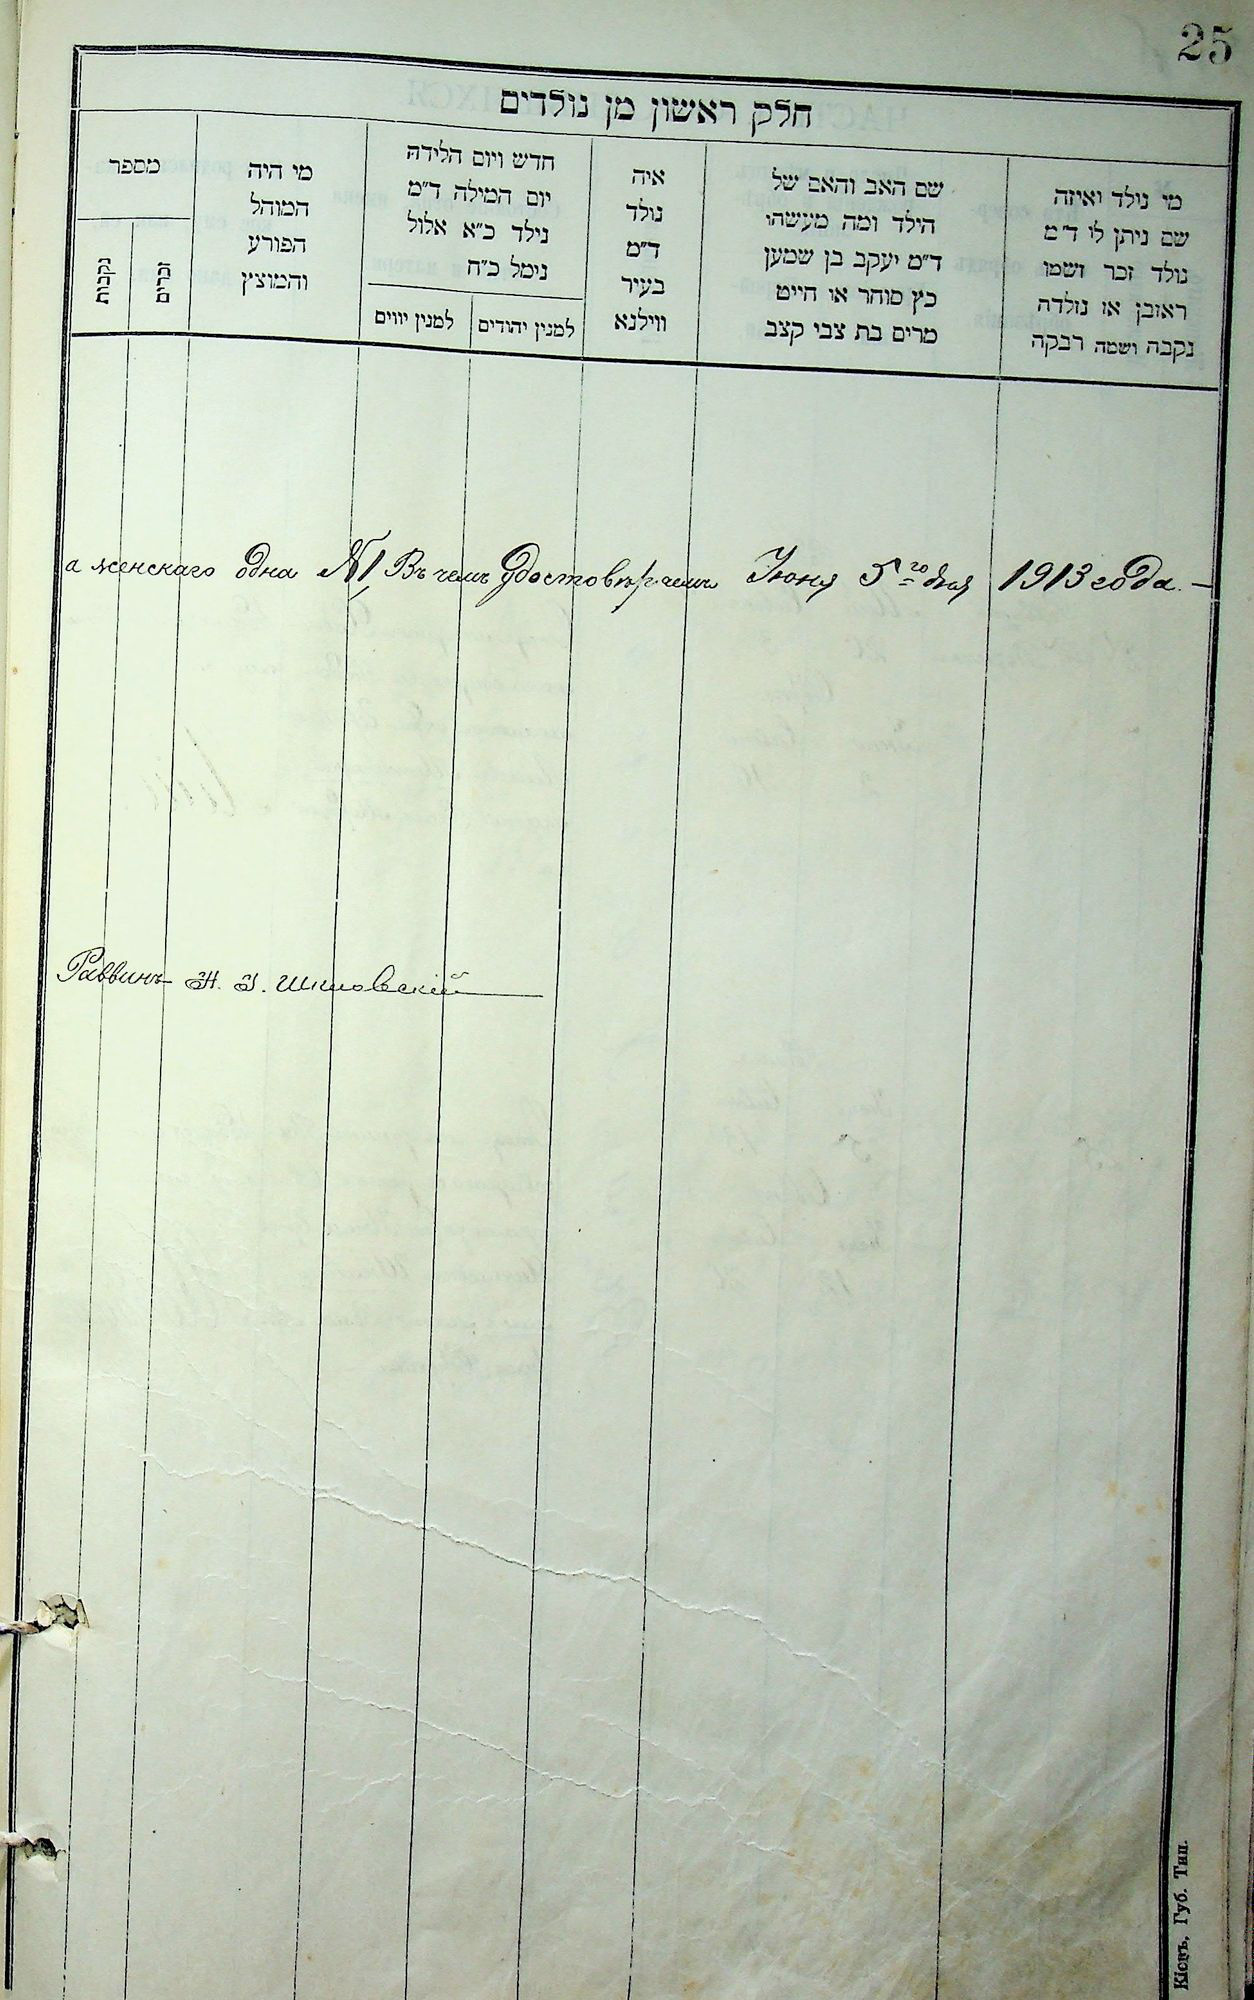 25
חלק ראשון מן נולדים
מי נולד ואיזה
שם ניתן לו ד״מ
נולד זכר ושמו
ראובן או נולדה
נקבה ושמה רבקה
שם האב והאם של
הילד ומה מעשהו
ד״מ יעקב בן שמעון
כץ סוחר או חייט
מרים בת צבי קצב
איה
נולד
ד״מ
בעיר
ווילנא
חדש ויום הלידה
יום המילה ד״מ
נילד כ״א אלול
נימל כ״ח
למנין יהודים
למנין יווים
מי היה
המוהל
הפורע
והמוצץ
מספר
זכרים
נקבות
а женскаго одна №1 Въ чемъ удостовѣряемъ Іюня 5го дня 1913 года.—
Раввинъ Н. З. Шкловскій
Кіевъ, Губ. Тип.